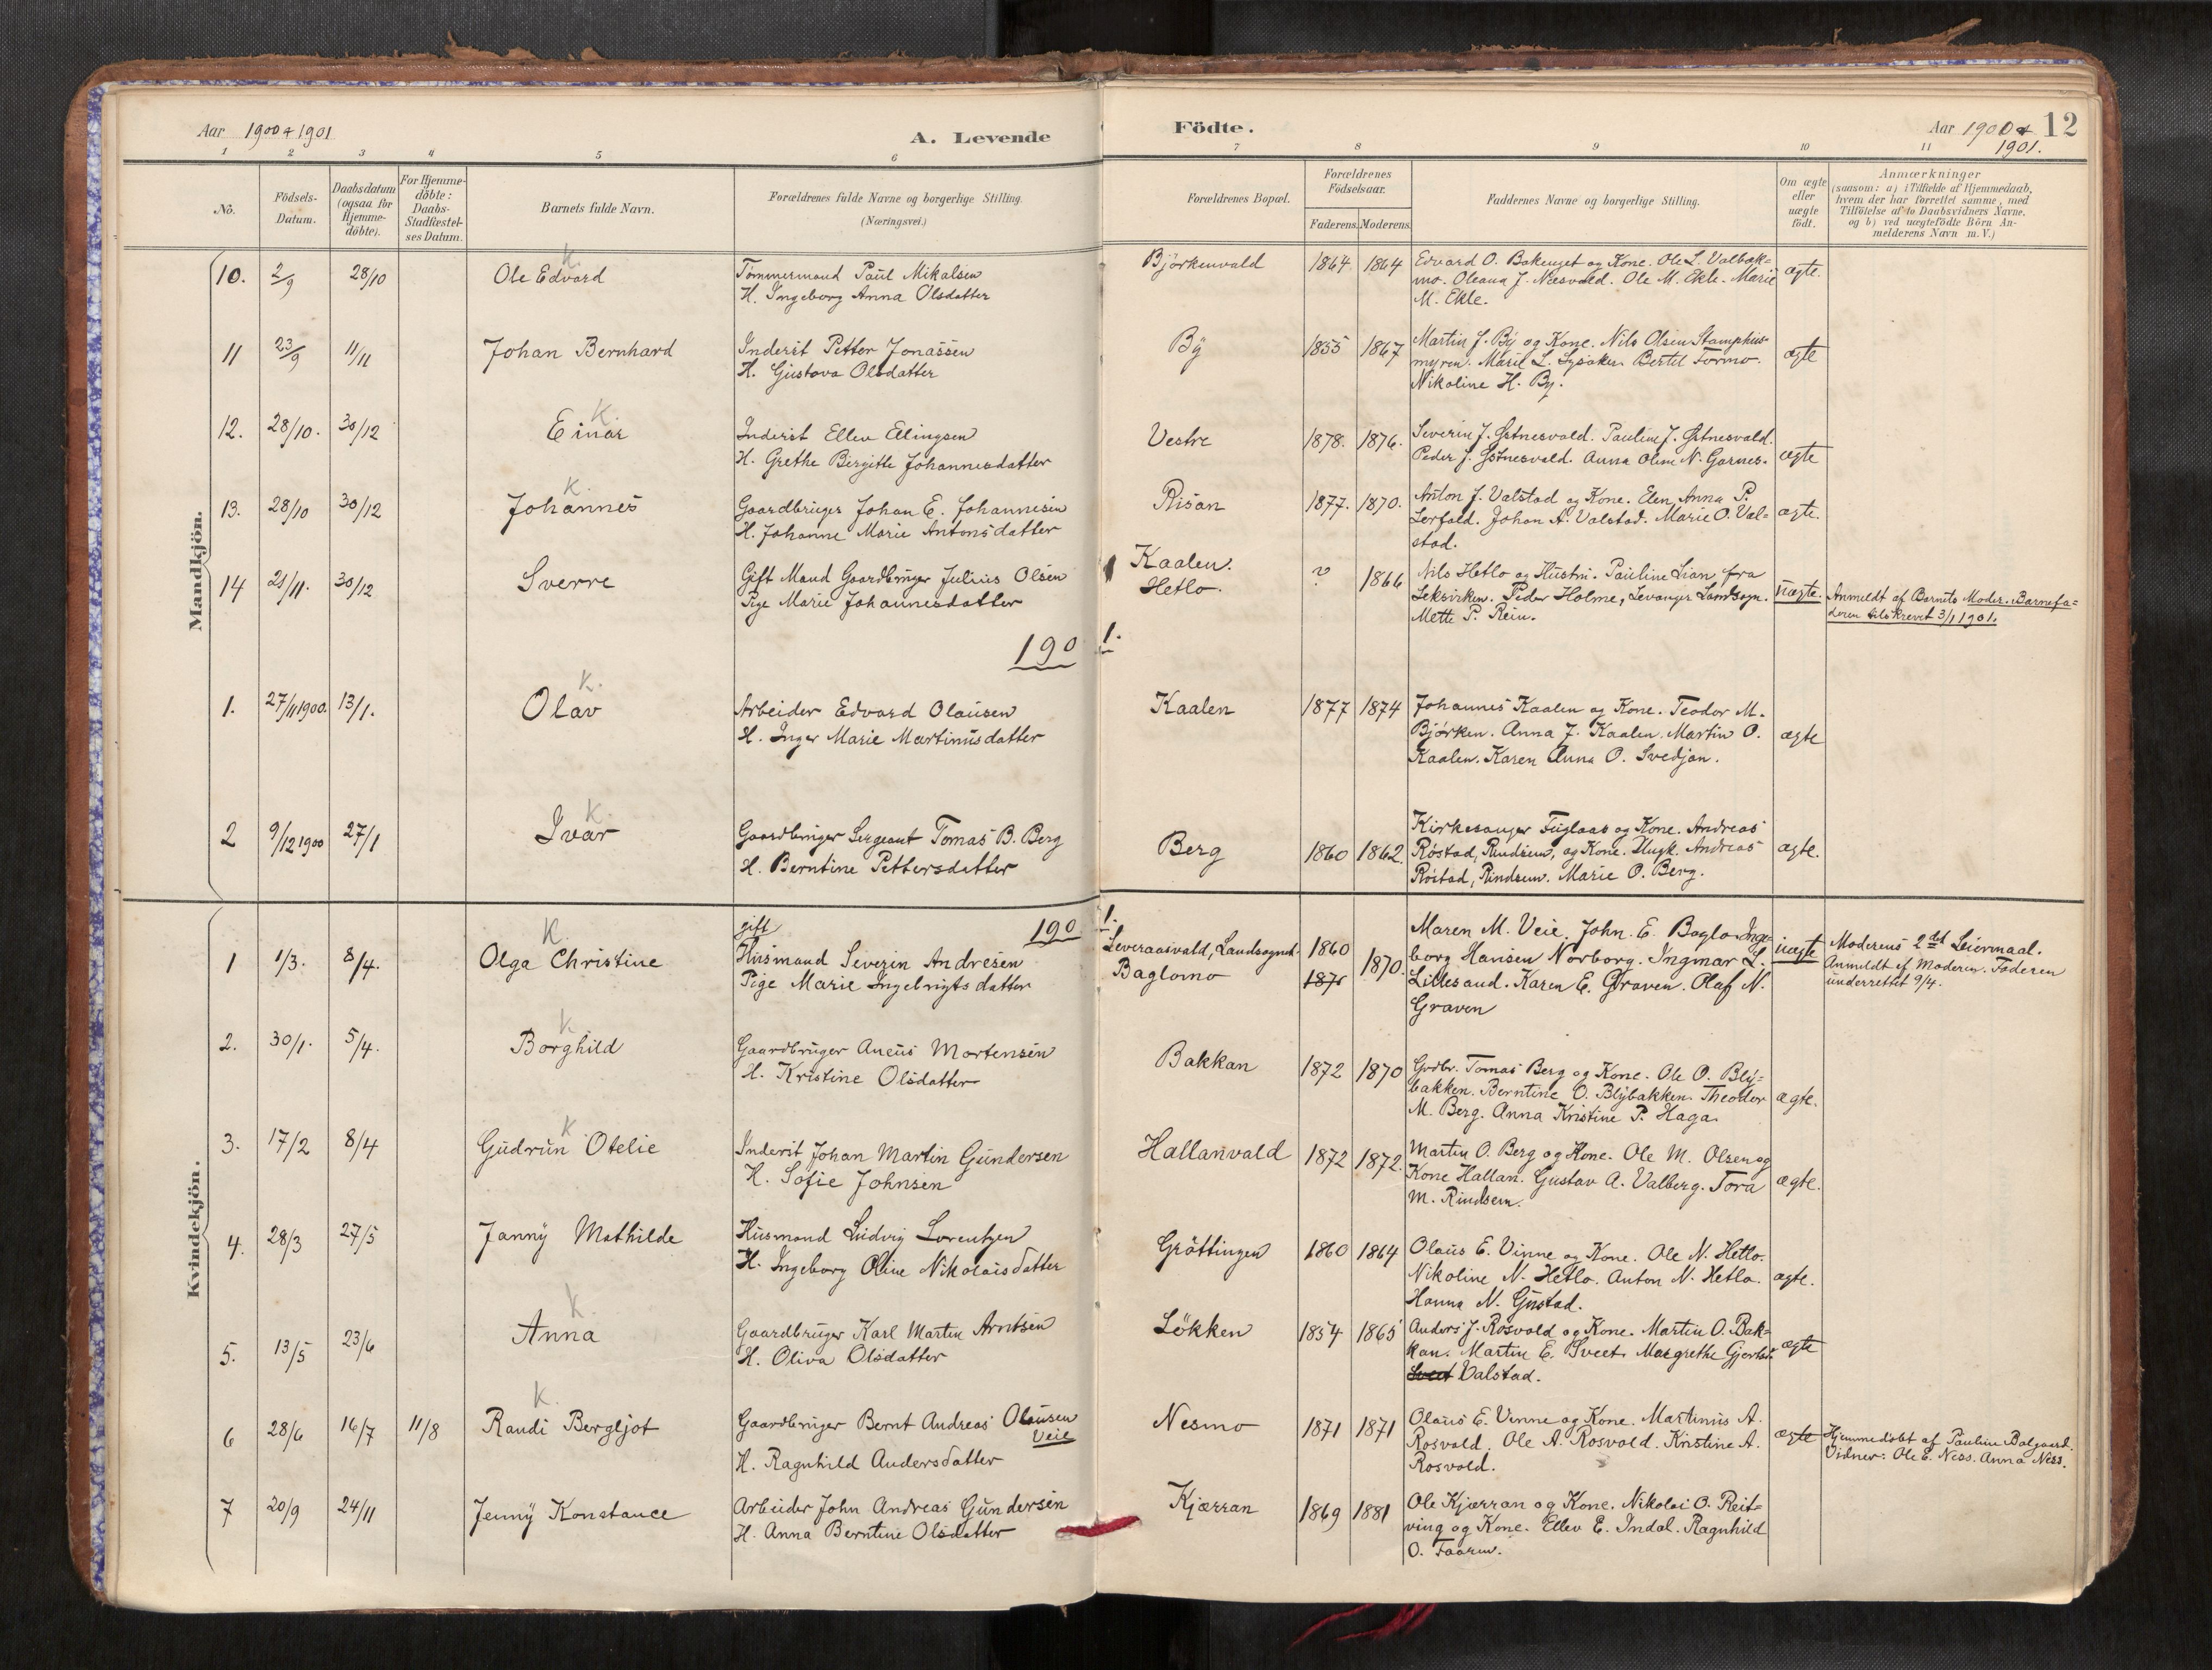 Aar 1900 & 1901
A. Levende
Födte.
Aar 1900 &
1901.
12
1 2 3 4 5 6 7 8 9 10 11
No.
Födsels-
Datum.
Daabsdatum
(ogsaa for
Hjemme-
döbte).
For Hjemme-
döbte:
Daabs-
Stadfæstel-
ses Datum.
Barnets fulde Navn.
Forældrenes fulde Navne og borgerlige Stilling.
(Næringsvei.)
Forældrenes Bopæl.
Forældrenes
Födselsaar.
Faderens. Moderens.
Faddernes Navne og borgerlige Stilling.
Om ægte
eller
uægte
födt.
Anmærkninger
(saasom: a) i Tilfælde af Hjemmedaab,
hvem der har forrettet samme, med
Tilföielse af to Daabsvidners Navne,
og b) ved uægtefödte Börn An-
melderens Navn m. V.)
Mandkjön.
10. 2/9 28/10 Ole Edvard K.
Tømmermand Paul Mikalsen
H. Ingeborg Anna Olsdatter
Björkenvald 1864 1864
Edvard O. Bakenget og Kone. Ole L. Valbæk=
mo. Oleana J. Næsvald. Ole M. Ekle. Marie
M. Ekle.
ægte.
11 23/9 11/11 Johan Bernhard
Inderst Petter Jonassen
H. Gustava Olsdatter
By 1855 1867
Martin J. By og Kone. Nils Olsen Stamphus-
myren. Maril L. Lysaker. Bertel Tormo.
Nikoline H. By.
ægte
12. 28/10. 30/12 Einar K.
Inderst Ellev Elingsen
H. Grethe Birgitte Johannesdatter
Vestre 1878. 1876.
Severin J. Østnesvald. Pauline J. Østnesvald.
Peder J. Østnesvald. Anna Oline N. Garnes.
ægte
13. 28/10 30/12 Johannes K.
Gaardbruger Johan E. Johannesen
H. Johanne Marie Antonsdatter
Risan 1877. 1870.
Anton J. Valstad og Kone. Elen Anna P.
Lerfald. Johan A. Valstad. Marie O. Val=
stad.
ægte.
14 21/11. 30/12 Sverre
Gift Mand Gaardbruger Julius Olsen
Pige Marie Johannesdatter
Kaalen.
Hetlo.
? 1866
Nils Hetlo og Hustru. Pauline Lian, fra
Leksviken. Peder Holme, Levanger Landsogn.
Mette P. Rein.
uægte.
Anmeldt af Barnets Moder. Barnefa=
deren tilskrevet 3/1 1901.
1901.
1. 27/11 1900. 13/1. Olav K.
Arbeider Edvard Olausen
H. Inger Marie Martinusdatter
Kaalen 1877 1874
Johannes Kaalen og Kone. Teodor M.
Bjørken. Anna J. Kaalen. Martin O.
Kaalen. Karen Anna O. Svedjan.
ægte
2 9/12 1900 27/1 Ivar K
Gaardbruger Sergeant Tomas B. Berg
H. Berntine Pettersdatter
Berg 1860 1862.
Kirkesanger Fuglaas og Kone. Andreas
Røstad, Rindsem, og Kone. Ungk. Andreas
Røstad, Rindsem. Marie O. Berg.
ægte.
Kvindekjön.
1901.
1 1/3. 8/4. Olga Christine K.
gift
Husmand Severin Andresen
Pige Marie Ingebrigtsdatter
Leveraasvald, Landsognet.
Baglomo
1860
1871
1870.
Maren M. Veie. John. E. Baglo. Inge-
borg Hansen Norborg. Ingmar L.
Lillesand. Karen E. Graven. Olaf N.
Graven
uægte
Moderens 2det Leiermaal.
Anmeldt af Moderen. Faderen
underrettet 9/4.
2. 30/1. 5/4. Borghild K
Gaardbruger Aneus Mortensen
H. Kristine Olsdatter
Bakkan 1872 1870
Grdbr. Tomas Berg og Kone. Ole O. Bly=
bakken. Berntine O. Blybakken. Theodor
M. Berg. Anna Kristine P. Haga.
ægte.
3. 17/2 8/4 Gudrun Otelie K
Inderst Johan Martin Gundersen
H. Sofie Johnsen
Hallanvald 1872 1872.
Martin O. Berg og Kone. Ole M. Olsen og
Kone Hallan. Gustav A. Valberg. Tora
M. Rindsem.
ægte.
4. 28/3 27/5 Janny Mathilde
Husmand Ludvig Lorentzen
H. Ingeborg Oline Nikolaisdatter
Gröttingen 1860 1864
Olaus E. Vinne og Kone. Ole N. Hetlo.
Nikoline N. Hetlo. Anton N. Hetlo.
Hanna N. Gustad.
ægte.
5. 13/5 23/6 Anna K.
Gaardbruger Karl Martin Arntsen
H. Oliva Olsdatter
Lökken 1854 1865
Anders J. Rosvold og Kone. Martin O. Bak=
kan. Martin E. Sveet. Margrethe Gjertsd.
Sveet Valstad.
ægte
6 28/6 16/7 11/8 Randi Bergljot K.
Gaardbruger Bernt Andreas Olausen
Veie
H. Ragnhild Andersdatter
Nesmo 1871 1871
Olaus E. Vinne og Kone. Martinus A.
Rosvold. Ole A. Rosvold. Kristine A.
Rosvold.
ægte
Hjemmedøbt af Pauline Balgaard.
Vidner: Ole E. Ness. Anna Ness.
7 20/9 24/11 Jenny Konstance
Arbeider John Andreas Gundersen
H. Anna Berntine Olsdatter
Kjærran 1869 1881
Ole Kjærran og Kone. Nikolai O. Reit=
ving og Kone. Ellev E. Indal. Ragnhild
O. Faaren.